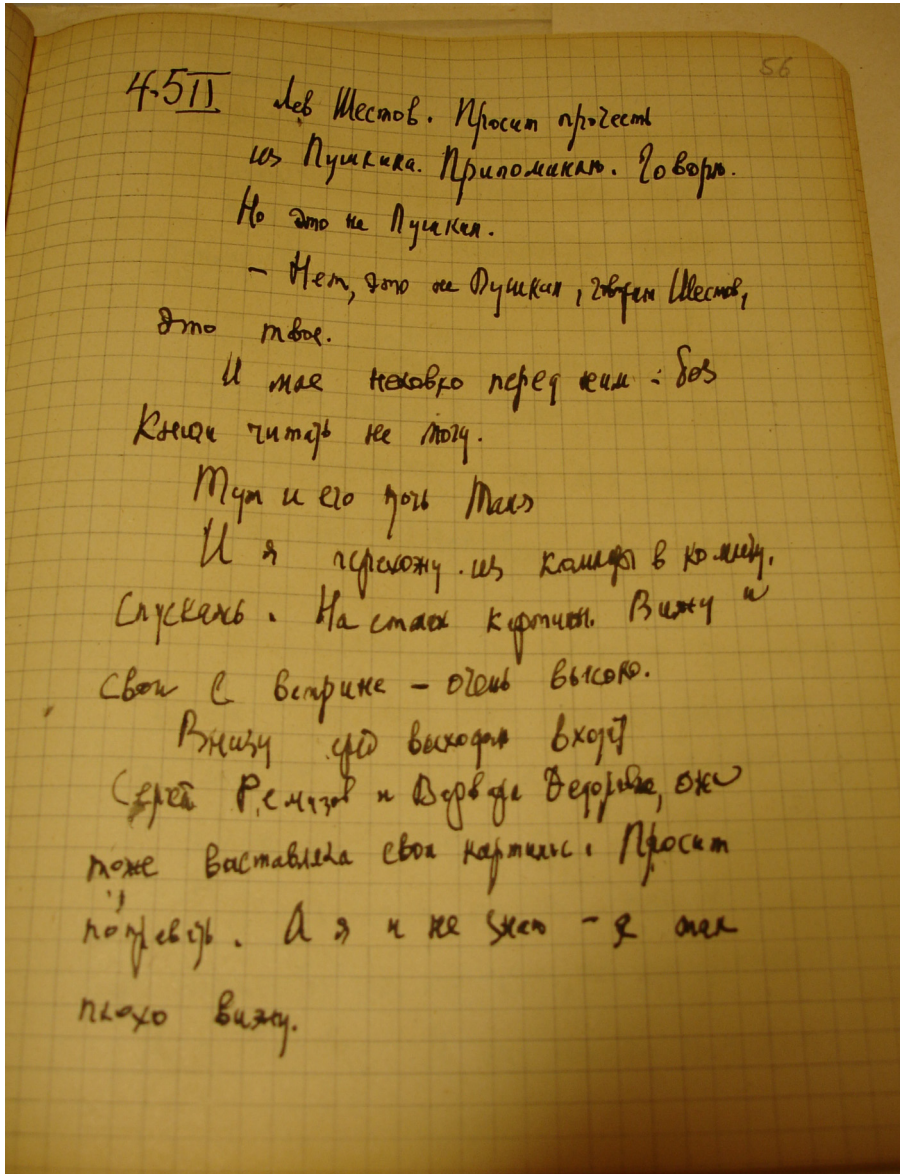 56
4-5 II Лев Шестов. Просит прочесть
из Пушкина. Припоминаю. Говорю.
Но это не Пушкин.
– Нет, это не Пушкин, говорит Шестов,
это твое.
И мне неловко перед ним: без
книги читать не могу.
Тут и его дочь Таня
И я перехожу из комнаты в комнату,
спускаюсь. На стенах картины. Вижу и
свои с витрине – очень высоко.
Внизу перед выходом входят
Сергей Ремизов и Варвара Федоровна, она
тоже выставляла свои картины. Просит
поправить. А я и не знаю – я так
плохо вижу.